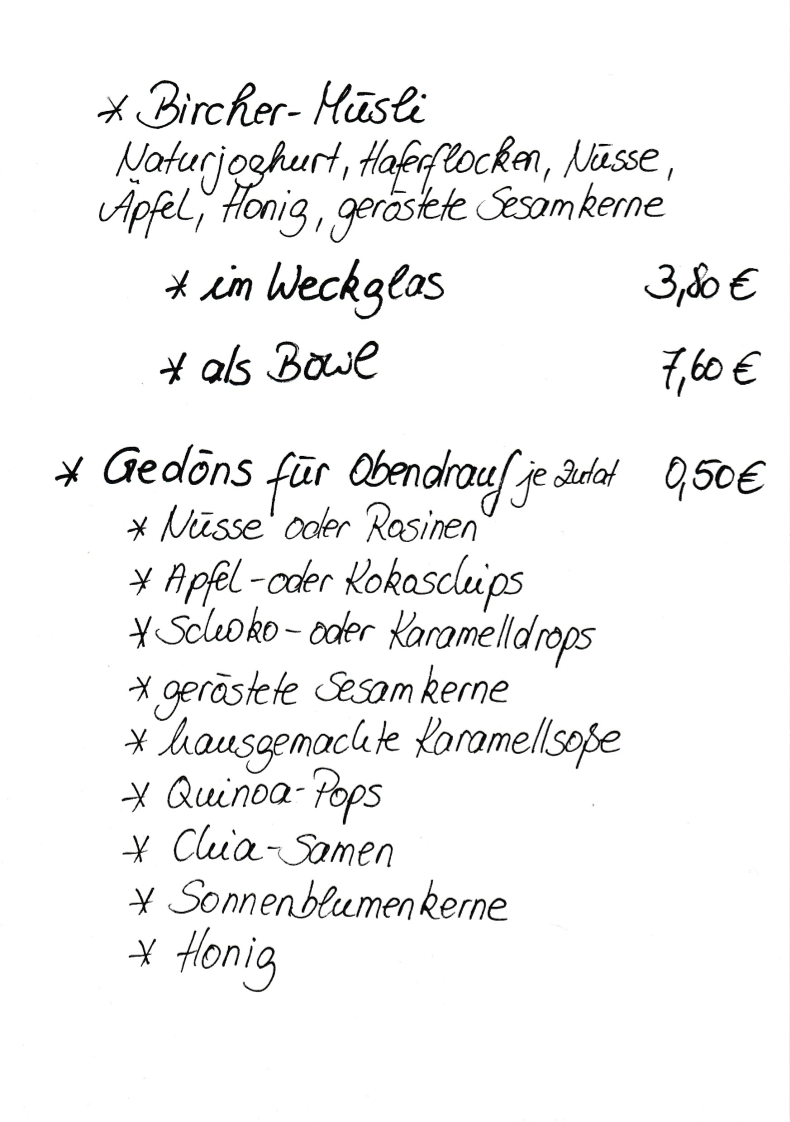 * Bircher-Müsli
Naturjoghurt, Haferflocken, Nüsse,
Äpfel, Honig, geröstete Sesamkerne
* im Weckglas 3,80 €
* als Bowl 7,60 €
* Gedöns für Obendrauf je Zutat 0,50 €
* Nüsse oder Rosinen
* Apfel- oder Kokoschips
* Schoko- oder Karamelldrops
* geröstete Sesamkerne
* hausgemachte Karamellsoße
* Quinoa-Pops
* Chia-Samen
* Sonnenblumenkerne
* Honig